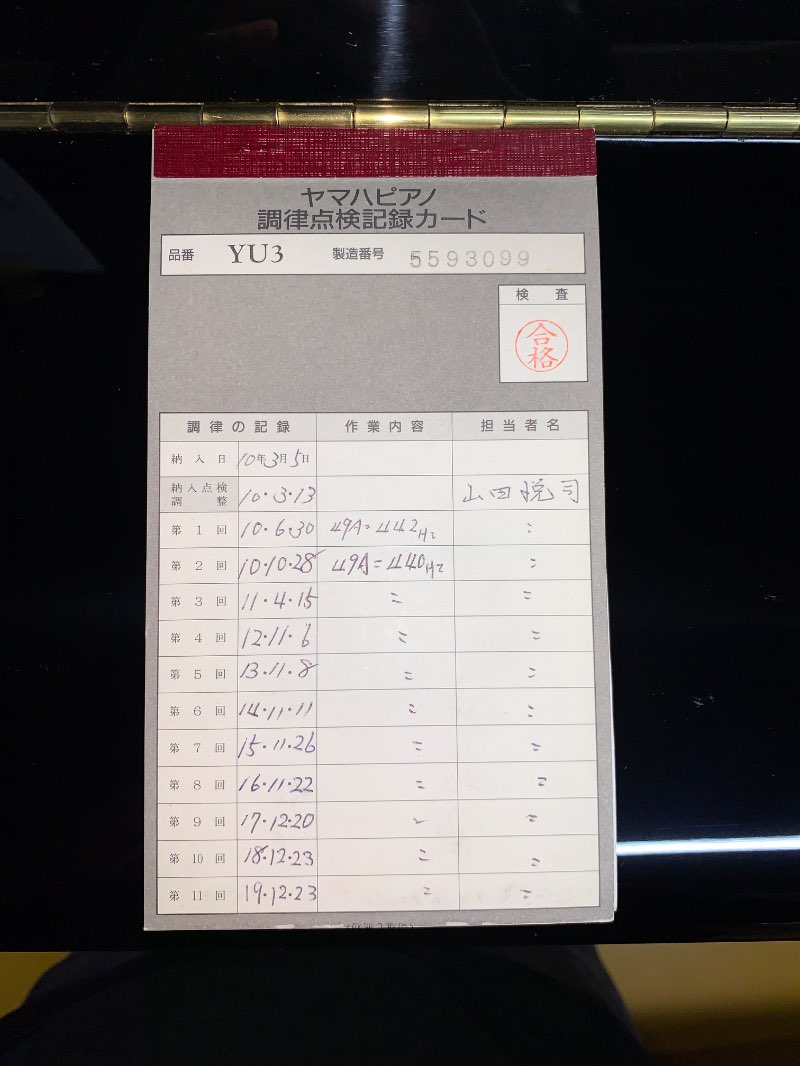 ヤマハピアノ
調律点検記録カード
品番 YU3 製造番号 5593099
検査
合格
調律の記録 作業内容 担当者名
納入日 10年3月5日
納入点検調整 10・3・13 山田悦司
第1回 10・6・30 49A=442Hz 〃
第2回 10・10・28 49A=440Hz 〃
第3回 11・4・15 〃 〃
第4回 12・11・6 〃 〃
第5回 13・11・8 〃 〃
第6回 14・11・11 〃 〃
第7回 15・11・26 〃 〃
第8回 16・11・22 〃 〃
第9回 17・12・20 〃 〃
第10回 18・12・23 〃 〃
第11回 19・12・23 〃 〃